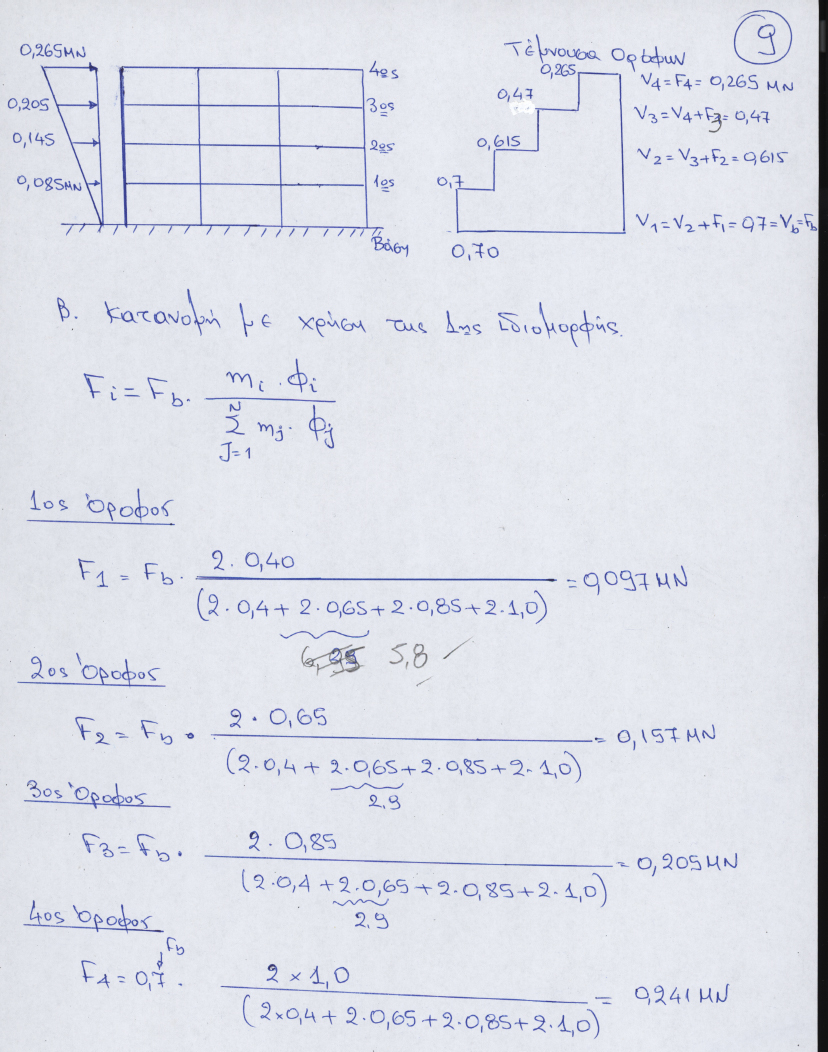 9
0,265MN
0,205
0,145
0,085MN
4ος
3ος
2ος
1ος
Βάση
Τέμνουσα Ορόφων
0,265
0,47
0,615
0,7
0,70
V4=F4= 0,265 MN
V3=V4+F3= 0,47
V2=V3+F2=0,615
V1=V2+F1=0,7=Vb=Fb
Β. Κατανομή με χρήση της 1ης Ιδιομορφής.
Fi=Fb· mi·Φi / Σ(J=1, N) mj·Φj
1ος Όροφος
F1 = Fb· 2·0,40 / (2·0,4+2·0,65+2·0,85+2·1,0) =0,097MN
5,8
2ος Όροφος
F2 = Fb · 2·0,65 / (2·0,4+2·0,65+2·0,85+2·1,0) = 0,157MN
2,9
3ος Όροφος
F3=Fb· 2·0,85 / (2·0,4+2·0,65+2·0,85+2·1,0) =0,205MN
2,9
4ος Όροφος
Fb
F4=0,7· 2×1,0 / (2×0,4+2·0,65+2·0,85+2·1,0) = 0,241MN